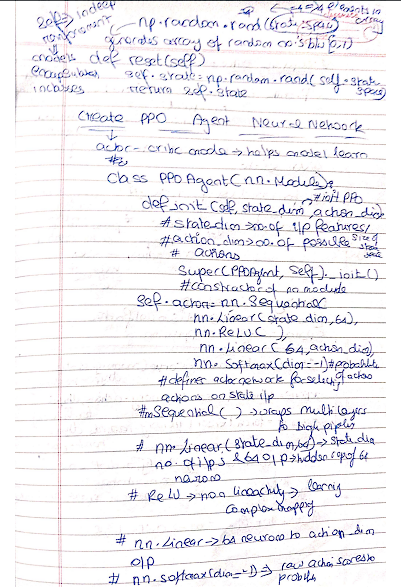 =4 => 4 elements in array
np.random.rand(state_space)
requirement generates array of random no.s b/w (0,1)
models def reset(self)
self.state = np.random.rand(self.state_space)
includes return self.state
Create PPO Agent Neural Network
actor-critic model → helps model learn
class PPOAgent(nn.Module):
#init PPO
def init(self, state_dim, action_dim)
#state_dim → no. of i/p features/ size of state space
#action_dim → no. of possible
# actions
Super(PPOAgent, self)._init()
#constructor of nn module
self.actor = nn.Sequential(
nn.Linear(state_dim, 64),
nn.ReLU(),
nn.Linear(64, action_dim),
nn.Softmax(dim=-1) #probability of action
#defines actor network for selecting
actions on state i/p
#nn.Sequential() → wraps multi layers
to single pipeline
# nn.Linear(state_dim, 64) → state_dim
no. of i/ps & 64 o/p → hidden rep of 64
neurons
# ReLU → non linearity → learning
complex mapping
# nn.Linear → 64 neurons to action_dim
o/p
# nn.softmax(dim=-1) → raw action scores to
probabs